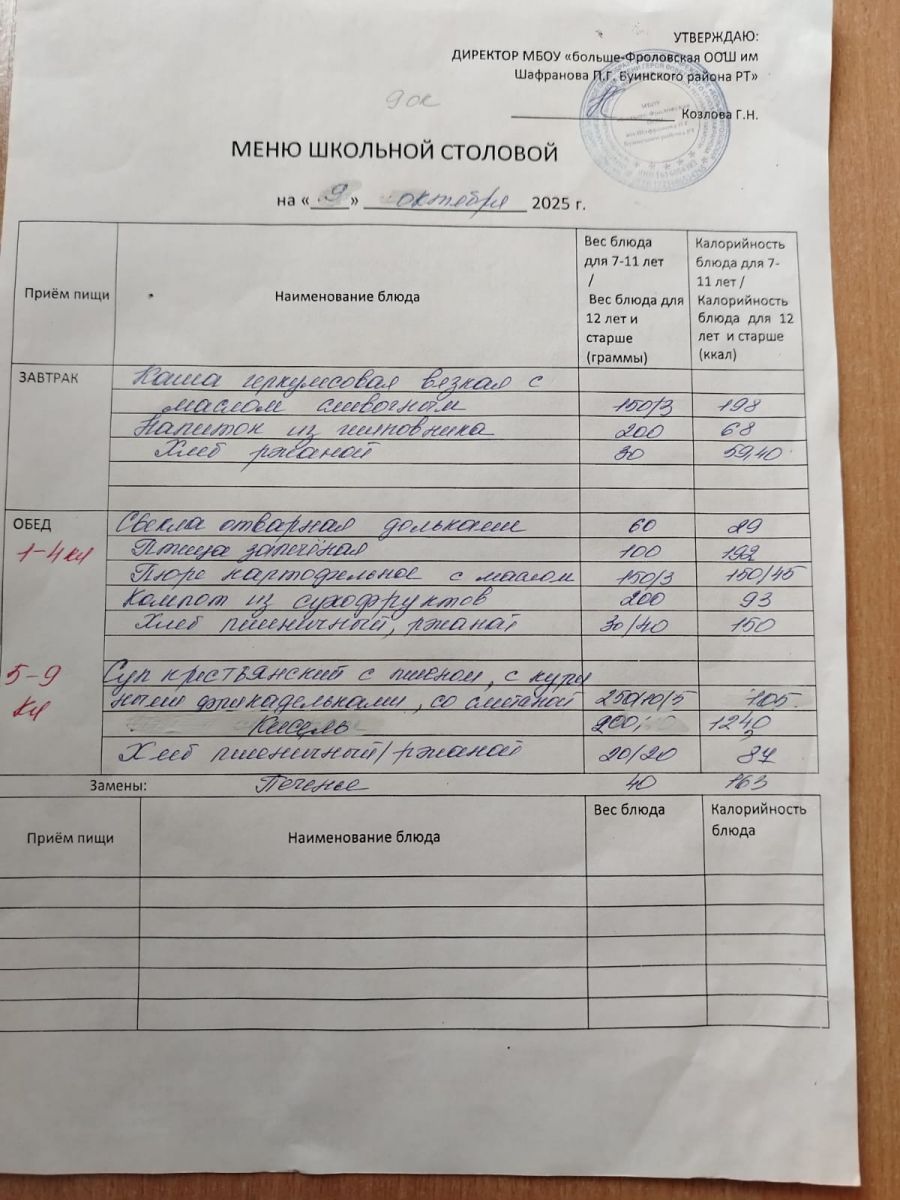 УТВЕРЖДАЮ:
ДИРЕКТОР МБОУ «больше-Фроловская ООШ им
Шафранова П.Г. Буинского района РТ»
9 ок
Козлова Г.Н.
МЕНЮ ШКОЛЬНОЙ СТОЛОВОЙ
на « 9 » октября 2025 г.
Приём пищи
Наименование блюда
Вес блюда
для 7-11 лет
/
Вес блюда для
12 лет и
старше
(граммы)
Калорийность
блюда для 7-
11 лет /
Калорийность
блюда для 12
лет и старше
(ккал)
ЗАВТРАК Каша геркулесовая вязкая с
маслом сливочным 150/3 198
Напиток из шиповника 200 68
Хлеб ржаной 30 59,40
ОБЕД Свекла отварная дольками 60 29
1-4 кл Птица запечёная 100 192
Пюре картофельное с маслом 150/3 150/45
Компот из сухофруктов 200 93
Хлеб пшеничный, ржаной 30/40 150
5-9 Суп крестьянский с пшеном, с кури
кл ными фрикадельками, со сметаной 250/10/5 105
Кисель 200 1240
Хлеб пшеничный/ржаной 20/20 87
Замены: Печенье 40 163
Приём пищи Наименование блюда Вес блюда Калорийность
блюда